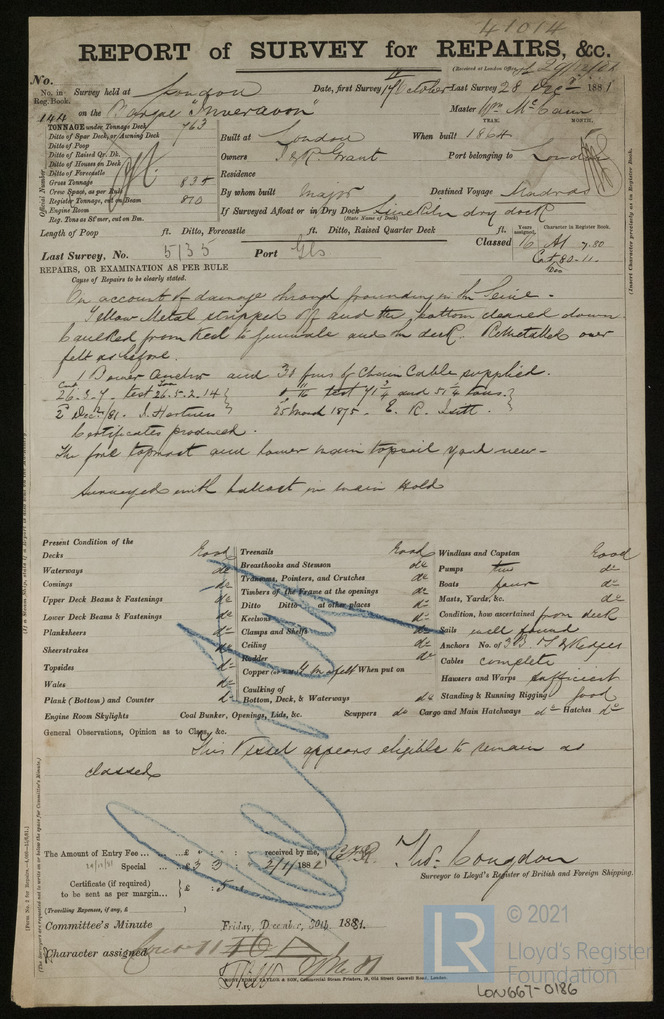 41014
REPORT of SURVEY for REPAIRS, &c.
(Received at London Office
No.
No. in Reg. Book. Survey held at London Date, first Survey 17th October Last Survey 28 Decr 1881
144 on the Barque "Inveravon" Master Wm. McCaun
TONNAGE under Tonnage Deck 763
TONS. MONTH.
Ditto of Spar Deck, or Awning Deck Built at London When built 1864
Ditto of Poop
Ditto of Raised Qr. Dk. Owners J & R Grant Port belonging to London
Ditto of Houses on Deck
Ditto of Forecastle Residence
Gross Tonnage 835
Crew Space, as per Rule By whom built Major Destined Voyage Madras
Register Tonnage, cut on Beam 810
Engine Room If Surveyed Afloat or in Dry Dock Limekiln dry dock
Reg. Tons as St'mer, cut on Bm. (State Name of Dock)
Official Number
Length of Poop ft. Ditto, Forecastle ft. Ditto, Raised Quarter Deck ft. Years assigned. Character in Register Book.
Last Survey, No. 5135 Port Gls Classed 16 A1 7.80
Cat. 80-11.
REPAIRS, OR EXAMINATION AS PER RULE
Cause of Repairs to be clearly stated.
On account of damage through grounding in the Seine.
Yellow Metal stripped off and the bottom cleaned down
Caulked from keel to gunwale and the deck. Remetalled over
felt as before.
1 Bower Anchor and 30 fms of Chain Cable supplied.
26.3.7 test 26.5.2.14 test 71 3/4 and 51 1/4 tons.
2d Decr /81. J. Hartness 25 March 1875. E. R.
Certificates produced.
The fore topmast and lower main topsail yard new-
Surveyed with ballast in main hold
Present Condition of the
Decks Good Treenails Good Windlass and Capstan Good
Waterways do Breasthooks and Stemson do Pumps two do
Comings do Transoms, Pointers, and Crutches do Boats four do
Upper Deck Beams & Fastenings do Timbers of the Frame at the openings do Masts, Yards, &c. do
Ditto Ditto at other places do Condition, how ascertained from deck
Lower Deck Beams & Fastenings do Keelsons do Sails well found
Plankshears do Clamps and Shelfs do Anchors No. of 3 B 1 S 2 Kedges
Sheerstrakes do Ceiling do Cables complete
Topsides do Rudder do Hawsers and Warps sufficient
Wales do Copper (or Y M & felt When put on
Plank (Bottom) and Counter do Caulking of Bottom, Deck, & Waterways do Standing & Running Rigging good
Engine Room Skylights Coal Bunker, Openings, Lids, &c. Scuppers do Cargo and Main Hatchways do Hatches do
General Observations, Opinion as to Class, &c.
This Vessel appears eligible to remain as
classed
The Amount of Entry Fee ... £ : : received by me,
Special ... £3 3 : 2/1/1882
Certificate (if required) to be sent as per margin... £ : 5 :
(Travelling Expenses, if any, £ )
Thos. Congdon
Surveyor to Lloyd's Register of British and Foreign Shipping.
Committee's Minute Friday, December, 30th 1881.
Character assigned
TAYLOR & SON, Commercial Steam Printers, 19, Old Street Goswell Road, London.
© 2021
LR
Lloyd's Register
Foundation
LON667-0186